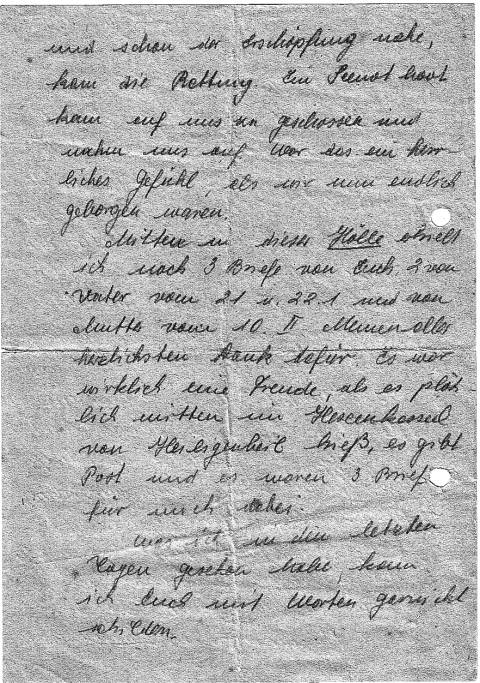 und schon der Erschöpfung nahe,
kam die Rettung. Ein Seenot boot
kam auf uns zu geschossen und
nahm uns auf. War das ein herr-
liches Gefühl, als wir nun endlich
geborgen waren.
Mitten in dieser Hölle erhielt
ich noch 3 Briefe von Euch. 2 von
Vater vom 21 u. 22.1 und von
Mutter vom 10. II Meinen aller
herzlichsten Dank dafür. Es war
wirklich eine Freude, als es plötz-
lich mitten im Hexenkessel
von Heiligenbeil hieß, es gibt
Post und es waren 3 Brief
für mich dabei.
Was ich in den letzten
Tagen gesehen habe, kann
ich Euch mit Worten garnicht
schildern.